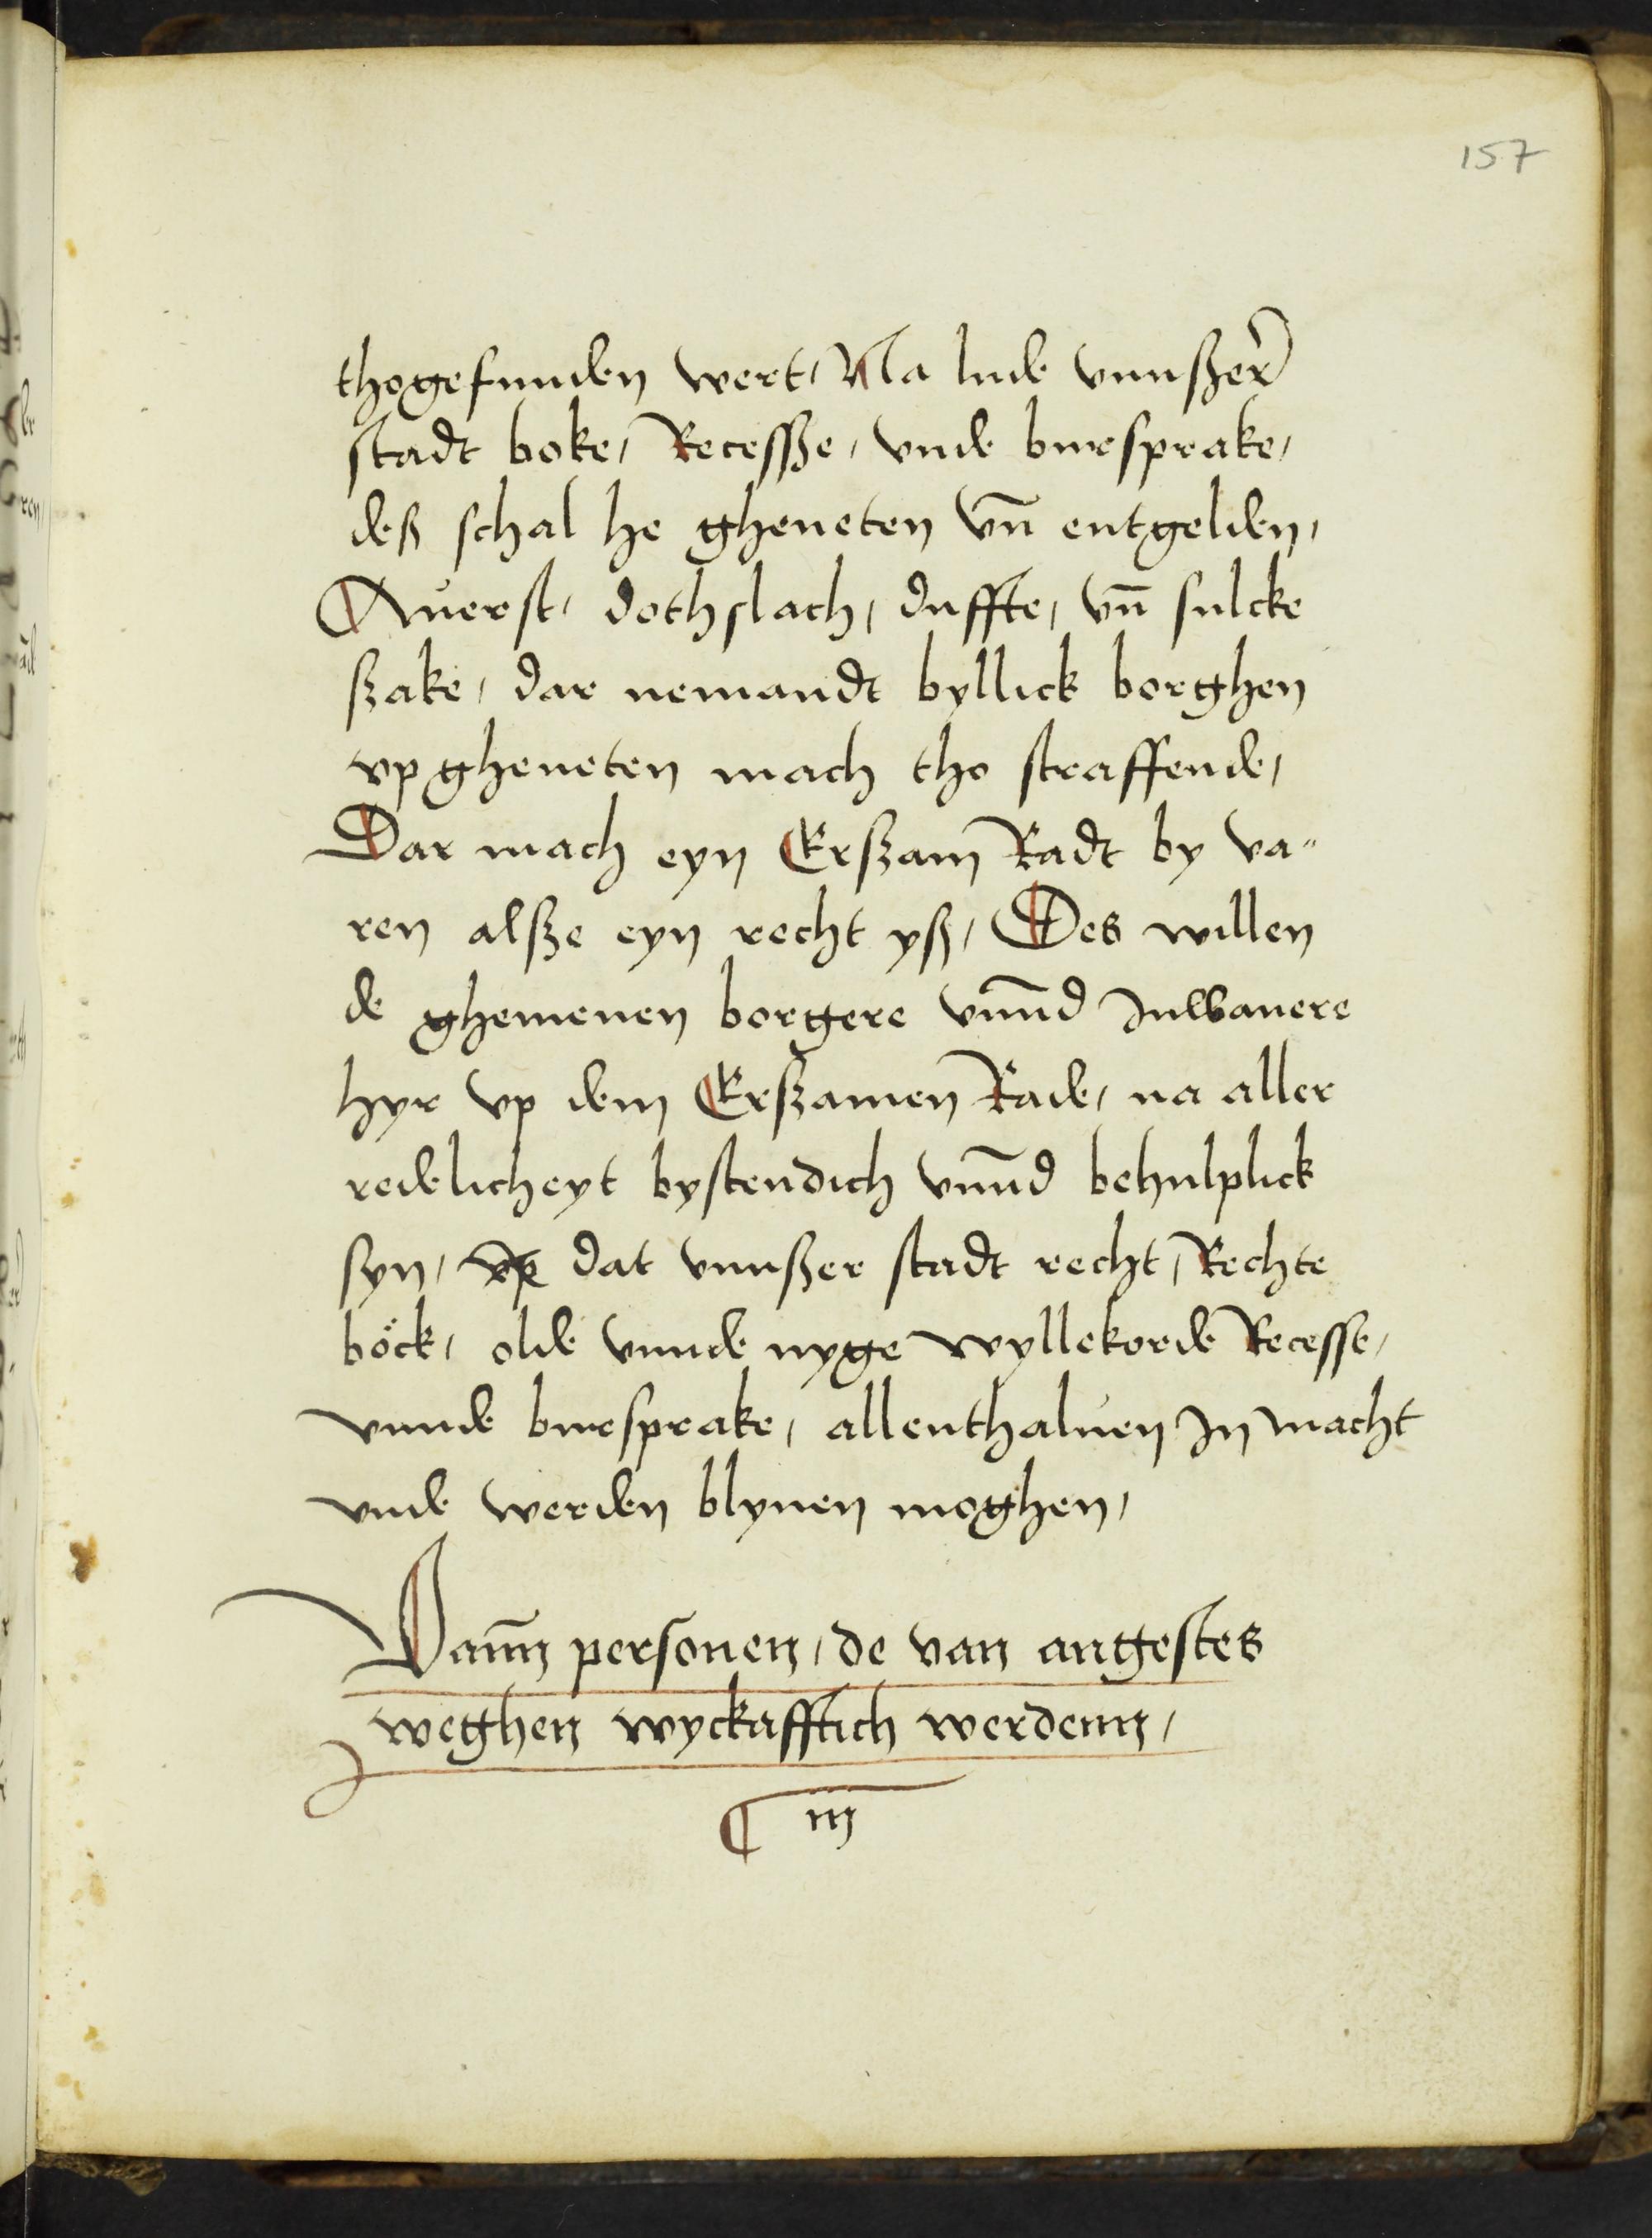 157
thogefunden wert, Na lude vnnßer̃
stadt boke, Recessße, vnde bursprake,
deß schal he gheneten vn̄ entgelden,
Auerst, dothslach, duffte, vn̄ sulcke
ßake, dar nemandt byllick borghen
vpgheneten mach tho straffende,
Dar mach eyn Erßam Radt by va"
ren alßze eyn recht yß, Des willen
de ghemenen borgere vnn̄d Inwanere
hyr vp dem Erßamen Rade, na aller
redelicheyt bystendich vnn̄d behulplick
syn, vp dat vnnßer stadt recht, Rechte
böck, olde vnnde nyge wyllekorde Recesse,
vnnde bursprake, allenthaluen In macht
vnde werden blyuen moghen,
Vann̄ personen, de van angestes
weghen wyckafftich werdenn,
¶ iij